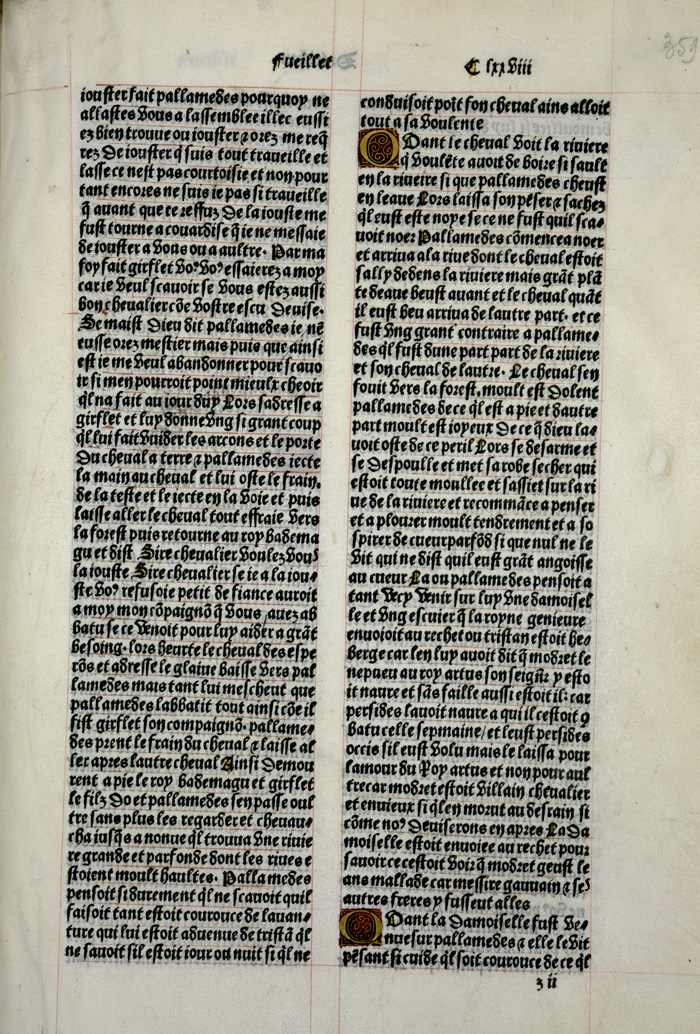 Fueillet
C lxxviii
359
iouster fait pallamedes pourquoy ne
allastes vous a lassemblee illec eussi
ez bien trouue ou iouster ⁊ orez me req̄
rez de iouster q̄ suis tout traueille et
lasse ce nest pas courtoisie et non pour
tant encores ne suis ie pas si traueille
q̄ auant que ce reffuz de la iouste me
fust tourne a couardise q̄ ie ne messaie
de iouster a vous ou a aultre. Par ma
foy fait girflet voꝰ voꝰ essaierez a moy
car ie veul scauoir se vous estez aussi
bon cheualier cōe vostre escu deuise.
Se maist dieu dit pallamedes ie nē
eusse orez mestier mais puis que ainsi
est ie me veul abandonner pour scauo
ir si men pourroit point mieulx cheoir
q̄l na fait au iour duy Lors sadresse a
girflet et luy donne vng si grant coup
q̄l lui fait vuider les arcons et le porte
du cheual a terre ⁊ pallamedes iecte
la main au cheual et lui oste le frain.
de la teste et le iecte en la voie et puis
laisse aller le cheual tout effraie vers
la forest puis retourne au roy badema
gu et dist Sire cheualier voulez vous
la iouste Sire cheualier se ie a la iou⸗
ste voꝰ refusoie petit de fiance auroit
a moy mon cōpaignō q̄ vous auez ab
batu se ce venoit pour luy aider a grāt
besoing. lors heurte le cheual des espe
rōs et adresse le glaiue baisse vers pal
lamedes mais tant lui mescheut que
pallamedes labbatit tout ainsi cōe il
fist girflet son compaignō. pallame⸗
des prent le frain du cheual ⁊ laisse al
ler apres lautre cheual Ainsi demou
rent a pie le roy bademagu et girflet
le filz do et pallamedes sen passe oul
tre sans plus les regarder et cheuau⸗
cha iusq̄s a nonne q̄l trouua vne riuie
re grande et parfonde dont les riues e
stoient moult haultes. Pallamedes
pensoit si durement q̄l ne scauoit quil
faisoit tant estoit courouce de lauan⸗
ture qui lui estoit aduenue de tristā q̄l
ne sauoit sil estoit iour ou nuit si q̄l ne
conduisoit poīt son cheual ains alloit
tout a sa voulente
Quant le cheual voit la riuiere
q̄ voulēte auoit de boire si sault
en la riueire si que pallamedes cheust
en leaue Lors laissa son pēser ⁊ sachez
q̄l eust este noye se ce ne fust quil sca⸗
uoit noer Pallamedes cōmencea noer
et arriua a la riue dont le cheual estoit
sally dedens la riuiere mais grāt plā
te deaue beust auant et le cheual quāt
il eust beu arriua de lautre part. et ce
fust vng grant contraire a pallame⸗
des q̄l fust dune part part de la riuiere
et son cheual de lautre. Le cheual sen
fouit vers la forest. moult est dolent
pallamedes de ce q̄l est a pie et dautre
part moult est ioyeux de ce q̄ dieu la⸗
uoit oste de ce peril Lors se desarme et
se despoulle et met sa robe secher qui
estoit toute moullee et sassiet sur la ri
ue de la riuiere et recommāce a penser
et a plourer moult tendrement et a so
spirer de cueur parfōd si que nul ne le
vit qui ne dist quil eust grāt angoisse
au cueur La ou pallamedes pensoit a
tant vecy venir sur luy vne damoisel
le et vng escuier q̄ la royne genieure
enuoioit au rechet ou tristan estoit he⸗
berge car len luy auoit dit q̄ modret le
nepueu au roy artus son seigñr y esto
it naure et sās faille aussi estoit il: car
persides lauoit naure a qui il cestoit ꝯ
batu celle sepmaine/ et leust persides
occis sil eust volu mais le laissa pour
lamour du Roy artus et non pour aul
tre car modret estoit villain cheualier
et enuieux si q̄l en morut au desrain si
cōme noꝰ deuiserons en apres La da
moiselle estoit enuoiee au rechet pour
sauoir ce cestoit voir q̄ modret geust le
ans mallade car messire gauuain ⁊ ses
autres freres y fussent alles
Quant la damoiselle fust ve⸗
nue sur pallamedes ⁊ elle le vit
pēsant si cuide q̄l soit courouce de ce q̄l
z ii